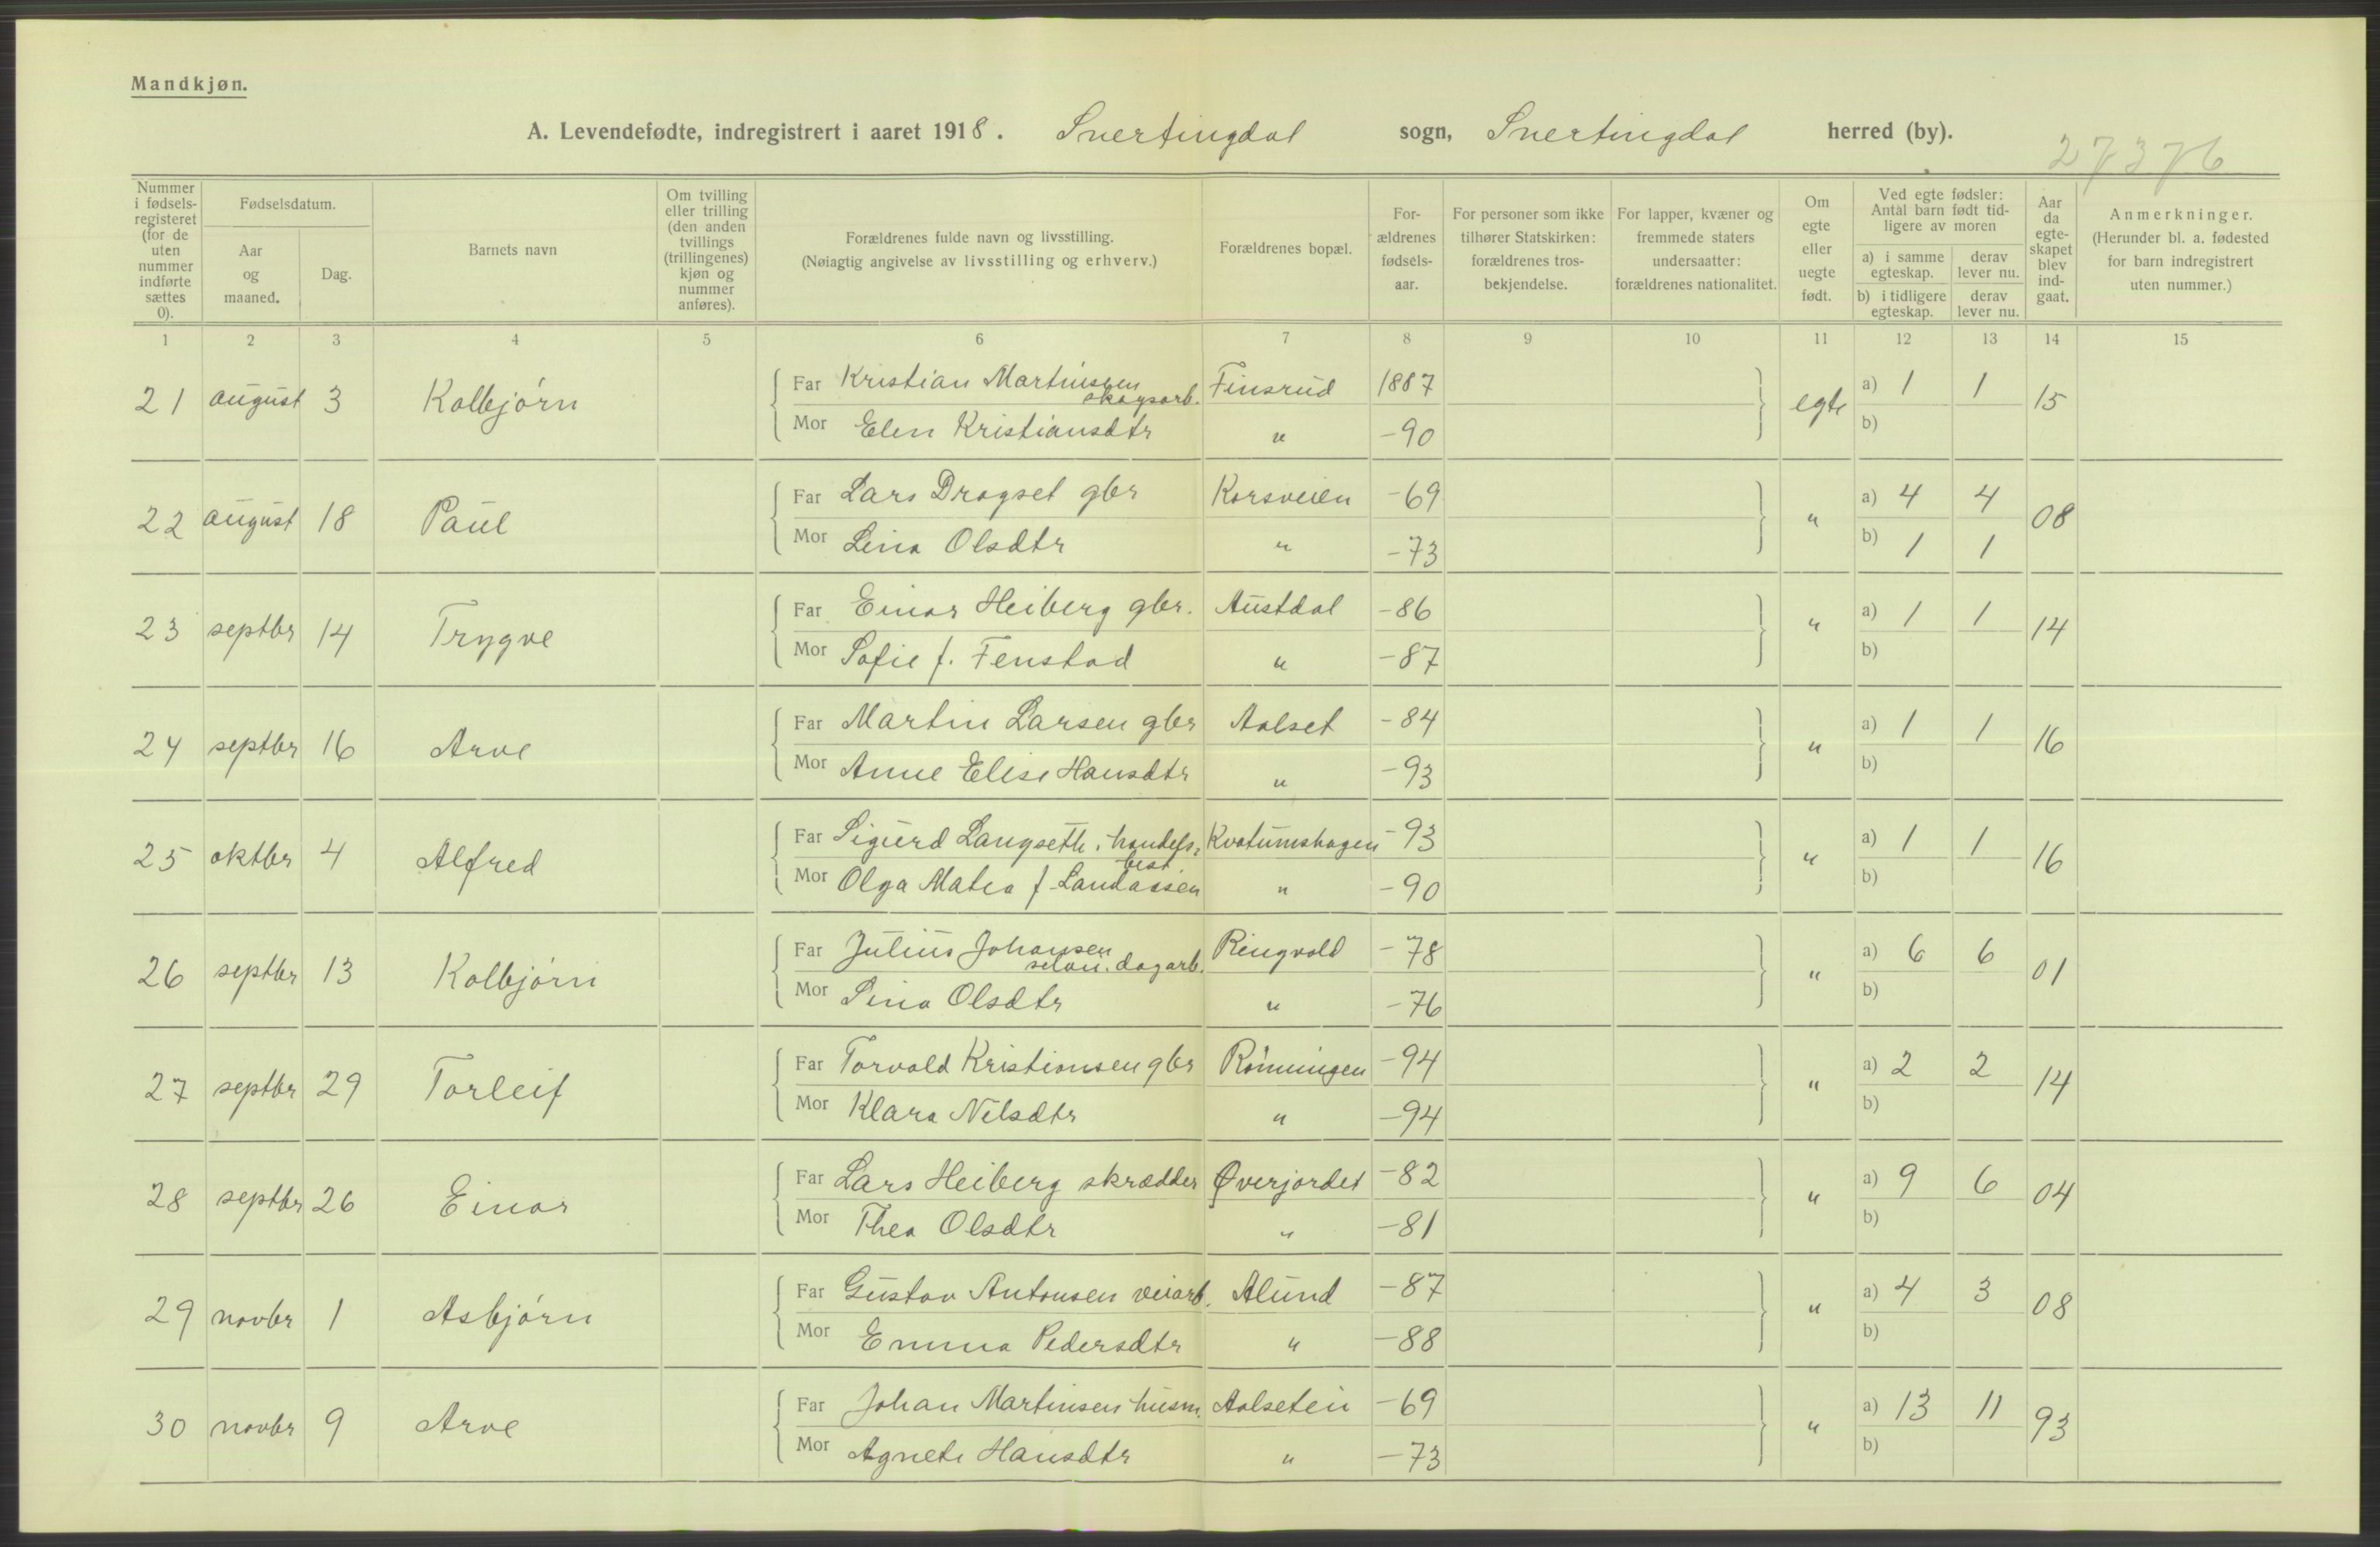 Mandkjøn.
A. Levendefødte, indregistrert i aaret 1918. Snertingdal sogn, Snertingdal herred (by).
27376
Nummer i fødselsregisteret (for de uten nummer indførte sættes 0). Fødselsdatum. Aar og maaned. Dag. Barnets navn Om tvilling eller trilling (den anden tvillings (trillingenes) kjøn og nummer anføres). Forældrenes fulde navn og livsstilling. (Nøiagtig angivelse av livsstilling og erhverv.) Forældrenes bopæl. Forældrenes fødselsaar. For personer som ikke tilhører Statskirken: forældrenes trosbekjendelse. For lapper, kvæner og fremmede staters undersaatter: forældrenes nationalitet. Om egte eller uegte født. Ved egte fødsler: Antal barn født tidligere av moren a) i samme egteskap. derav lever nu. b) i tidligere egteskap. derav lever nu. Aar da egteskapet blev indgaat. Anmerkninger. (Herunder bl. a. fødested for barn indregistrert uten nummer.)
1 2 3 4 5 6 7 8 9 10 11 12 13 14 15
21 august 3 Kolbjørn Far Kristian Martinsen skogsarb. Finsrud 1887 egte a) 1 1 15
Mor Elen Kristiansdtr " -90 b)
22 august 18 Paul Far Lars Dragset gbr Korsveien -69 " a) 4 4 08
Mor Lina Olsdtr " -73 b) 1 1
23 septbr 14 Trygve Far Einar Heiberg gbr. Austdal -86 " a) 1 1 14
Mor Sofie f. Fenstad " -87 b)
24 septbr 16 Arve Far Martin Larsen gbr Aalset -84 " a) 1 1 16
Mor Anne Elise Hansdtr " -93 b)
25 oktbr 4 Alfred Far Sigurd Langseth, handelsbest. Kvatumshagen -93 " a) 1 1 16
Mor Olga Matea f. Landaasen " -90 b)
26 septbr 13 Kolbjørn Far Julius Johansen dagarb. Ringvold -78 " a) 6 6 01
Mor Sina Olsdtr " -76 b)
27 septbr 29 Torleif Far Torvald Kristiansen gbr Rønningen -94 " a) 2 2 14
Mor Klara Nilsdtr " -94 b)
28 septbr 26 Einar Far Lars Heiberg skrædder Øverjordet -82 " a) 9 6 04
Mor Thea Olsdtr " -81 b)
29 novbr 1 Asbjørn Far Gustav Antonsen veiarb. Alund -87 " a) 4 3 08
Mor Emma Pedersdtr " -88 b)
30 novbr 9 Arve Far Johan Martinsen husm. Aalseteie -69 " a) 13 11 93
Mor Agnete Hansdtr " -73 b)